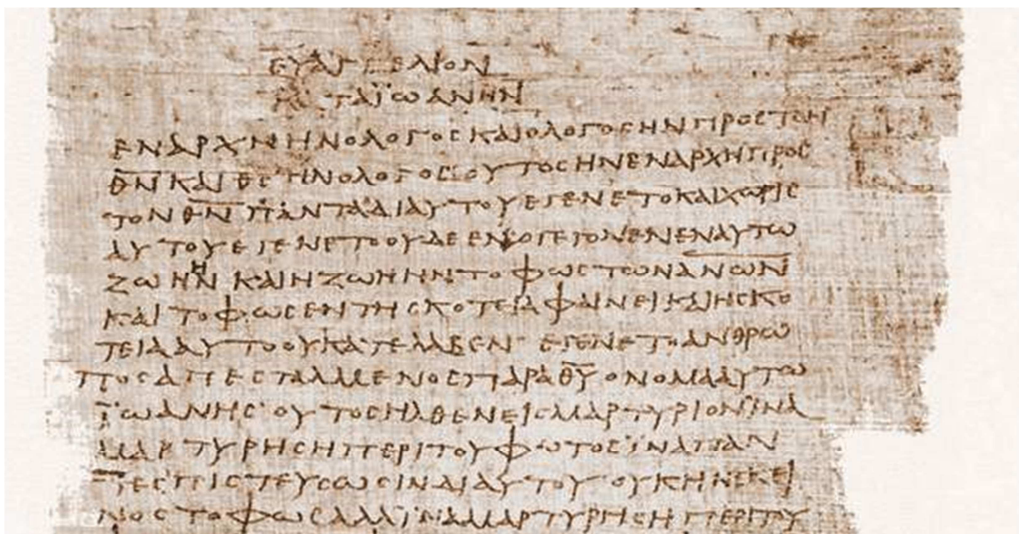 ΕΥΑΓΓΕΛΙΟΝ
ΚΑΤΑ ΪΩΑΝΗΝ
ΕΝ ΑΡΧΗ ΗΝ Ο ΛΟΓΟϹ ΚΑΙ Ο ΛΟΓΟϹ ΗΝ ΠΡΟϹ ΤΟΝ
Θ̅Ν̅ ΚΑΙ Θ̅Ϲ̅ ΗΝ Ο ΛΟΓΟϹ ΟΥΤΟϹ ΗΝ ΕΝ ΑΡΧΗ ΠΡΟϹ
ΤΟΝ Θ̅Ν̅ ΠΑΝΤΑ ΔΙ ΑΥΤΟΥ ΕΓΕΝΕΤΟ ΚΑΙ ΧΩΡΙϹ
ΑΥΤΟΥ ΕΓΕΝΕΤΟ ΟΥΔΕ ΕΝ Ο ΓΕΓΟΝΕΝ ΕΝ ΑΥΤΩ
ΖΩΗ ΗΝ ΚΑΙ Η ΖΩΗ ΗΝ ΤΟ ΦΩϹ ΤΩΝ Α̅Ν̅Ω̅Ν̅
ΚΑΙ ΤΟ ΦΩϹ ΕΝ ΤΗ ϹΚΟΤΕΙΑ ΦΑΙΝΕΙ ΚΑΙ Η ϹΚΟ
ΤΕΙΑ ΑΥΤΟ ΟΥ ΚΑΤΕΛΑΒΕΝ· ΕΓΕΝΕΤΟ ΑΝΘΡΩ
ΠΟϹ ΑΠΕϹΤΑΛΜΕΝΟϹ ΠΑΡΑ Θ̅Υ̅ ΟΝΟΜΑ ΑΥΤΩ
ΪΩΑΝΗϹ· ΟΥΤΟϹ ΗΛΘΕΝ ΕΙϹ ΜΑΡΤΥΡΙΟΝ ΪΝΑ
ΜΑΡΤΥΡΗϹΗ ΠΕΡΙ ΤΟΥ ΦΩΤΟϹ ΪΝΑ ΠΑΝ
ΤΕϹ ΠΙϹΤΕΥϹΩϹΙΝ ΔΙ ΑΥΤΟΥ· ΟΥΚ ΗΝ ΕΚΕΙ
ΝΟϹ ΤΟ ΦΩϹ ΑΛΛ ΪΝΑ ΜΑΡΤΥΡΗϹΗ ΠΕΡΙ ΤΟΥ